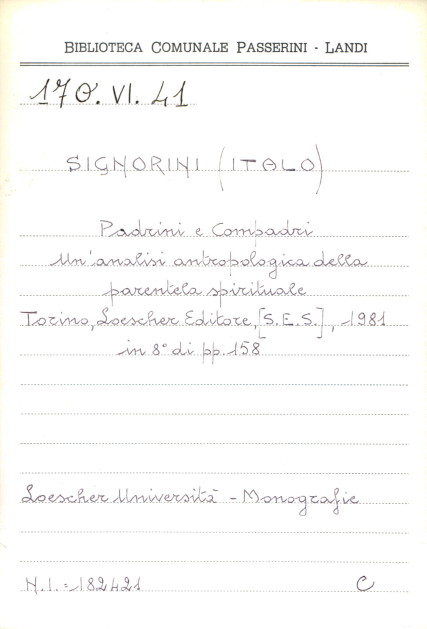 BIBLIOTECA COMUNALE PASSERINI - LANDI
170. VI. 41
SIGNORINI (ITALO)
Padrini e Compadri
Un'analisi antropologica della
parentela spirituale
Torino, Loescher Editore, [S.E.S.], 1981
in 8° di pp. 158
Loescher Università - Monografie
N.I. = 182421
C